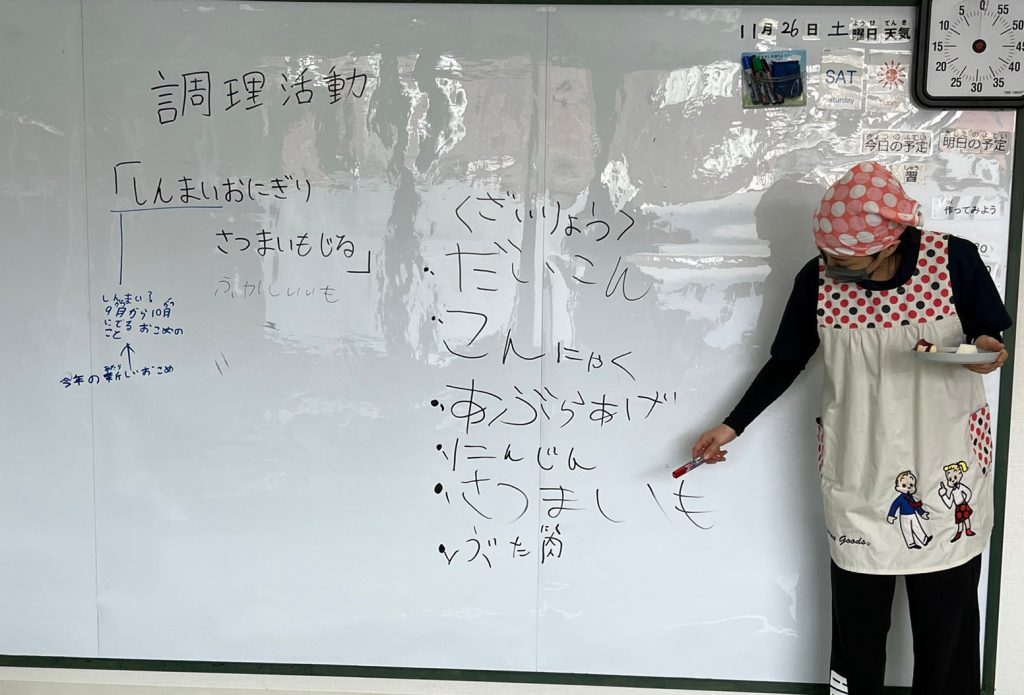 11月26日 土曜日 天気
ようび てんき
SAT
Saturday
5 0 55
10 50
15 45
20 40
25 30 35
今日の予定
明日の予定
習
作ってみよう
調理活動
「しんまいおにぎり
さつまいもじる」
ふかしいも
しんまい
9月から10月
にでる おこめの
こと
今年の新しいおこめ
<ざいりょう>
・だいこん
・こんにゃく
・あぶらあげ
・にんじん
・さつまいも
・ぶた肉
にく
Goods